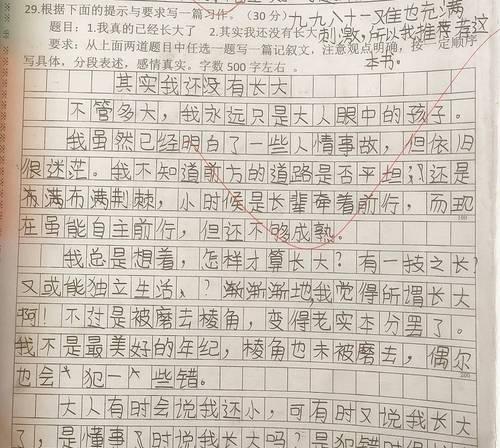 29.根据下面的提示与要求写一篇习作。(30分)九九八十一难也充满
题目：1.我真的已经长大了 2.其实我还没有长大 刺激,所以我推荐看这
要求：从上面两道题目中任选一题写一篇记叙文，注意观点明确，按一定顺序 本书。
写具体，分段表述，感情真实。字数500字左右。
其实我还没有长大
不管多大，我永远只是大人眼中的孩子。
我虽然已经明白了一些人情事故，但依旧
很迷茫。我不知道前方的道路是否平坦，还是
布满布满荆棘，小时候是长辈牵着前行，而现
100
在虽能自主前行，但还不够成熟。
我总是想着，怎样才算长大？有一技之长？
又或能独立生活、？渐渐渐地，我觉得所谓长大
啊！不过是被磨去棱角，变得老实本分罢了。
我不是最美好的年纪，棱角也未被磨去，偶尔
200
也会犯一些错。
大人有时会说我还小，可有时又说我长大
了，是懂事了时说我长大吗？是犯错时